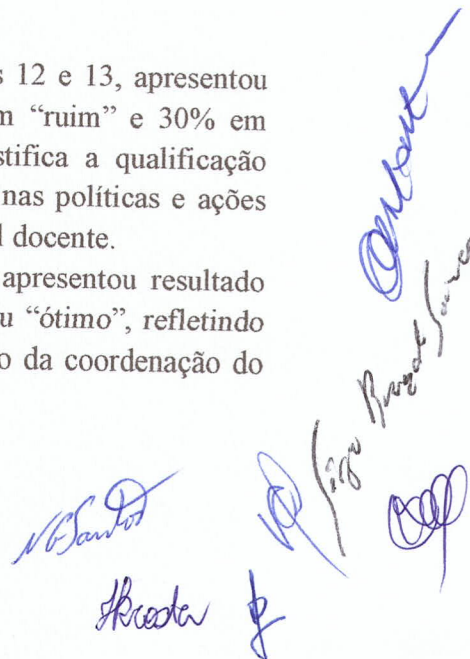 s 12 e 13, apresentou
m “ruim” e 30% em
stifica a qualificação
nas políticas e ações
l docente.
apresentou resultado
u “ótimo”, refletindo
o da coordenação do
NGSantos